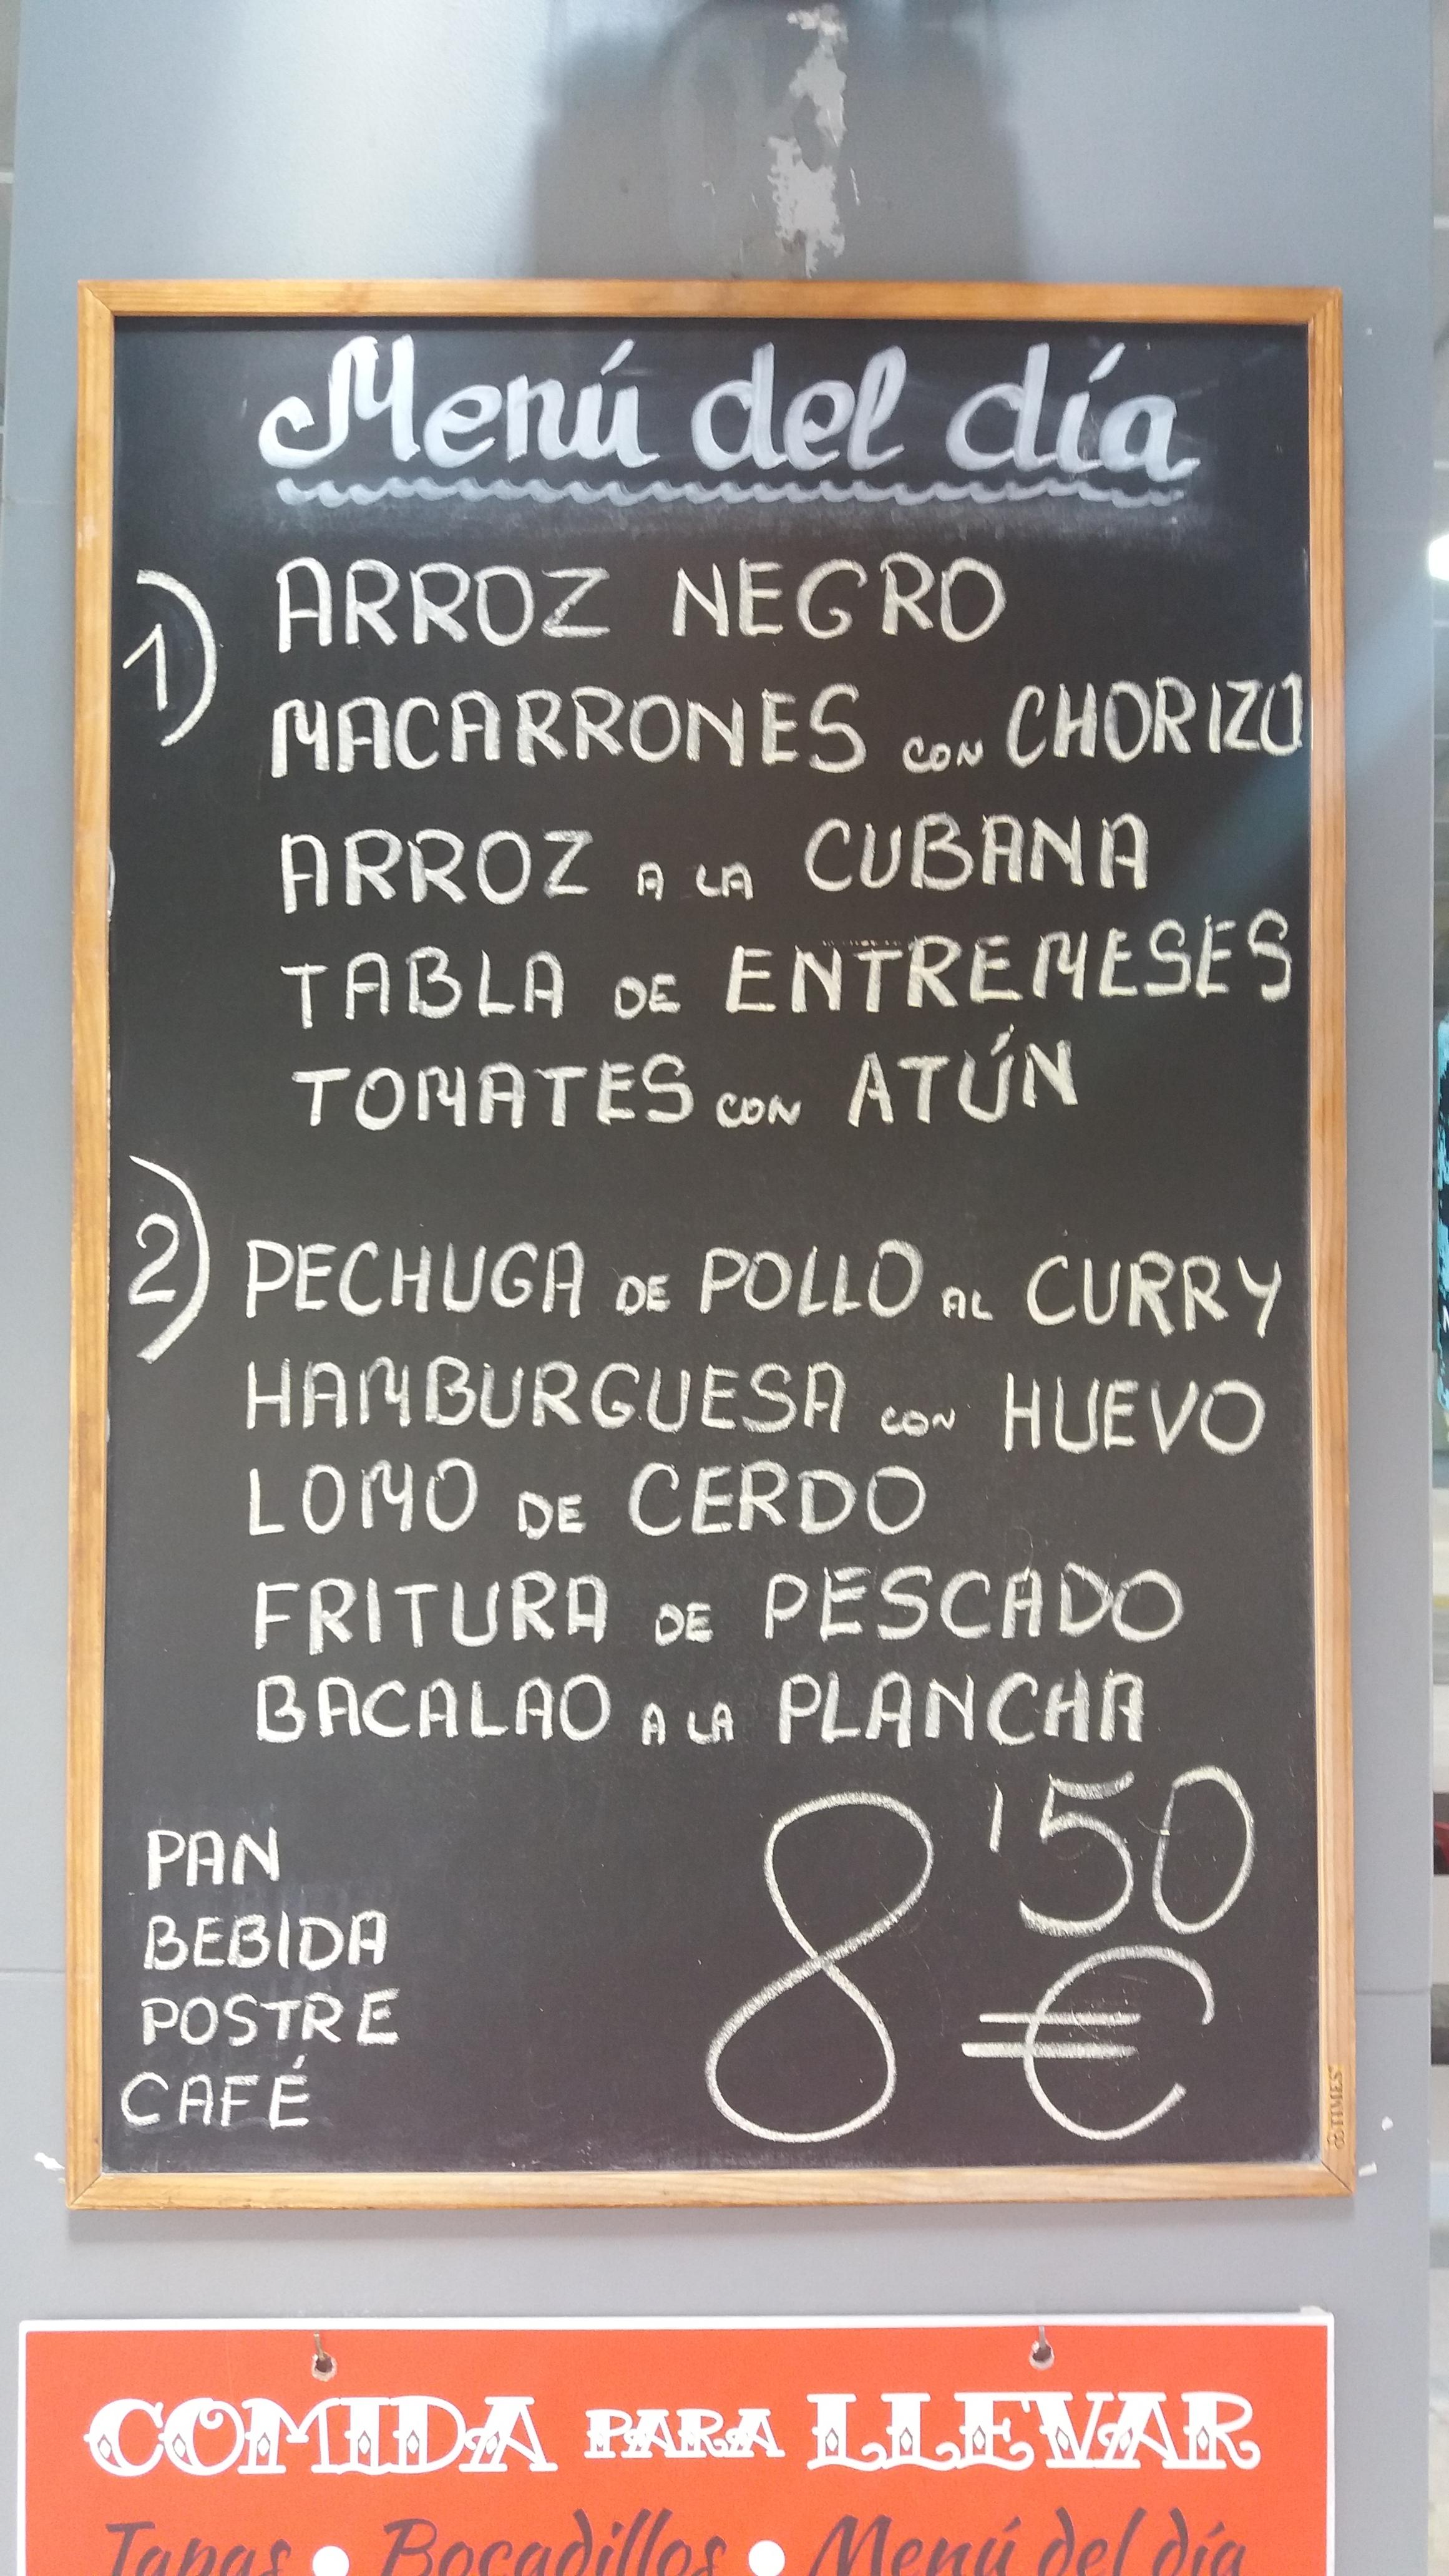 Menú del día
1) ARROZ NEGRO
MACARRONES CON CHORIZO
ARROZ A LA CUBANA
TABLA DE ENTREMESES
TOMATES CON ATÚN
2) PECHUGA DE POLLO AL CURRY
HAMBURGUESA CON HUEVO
LOMO DE CERDO
FRITURA DE PESCADO
BACALAO A LA PLANCHA
PAN
BEBIDA
POSTRE
CAFÉ
8'50
€
TIMES
COMIDA PARA LLEVAR
Tapas • Bocadillos • Menú del día